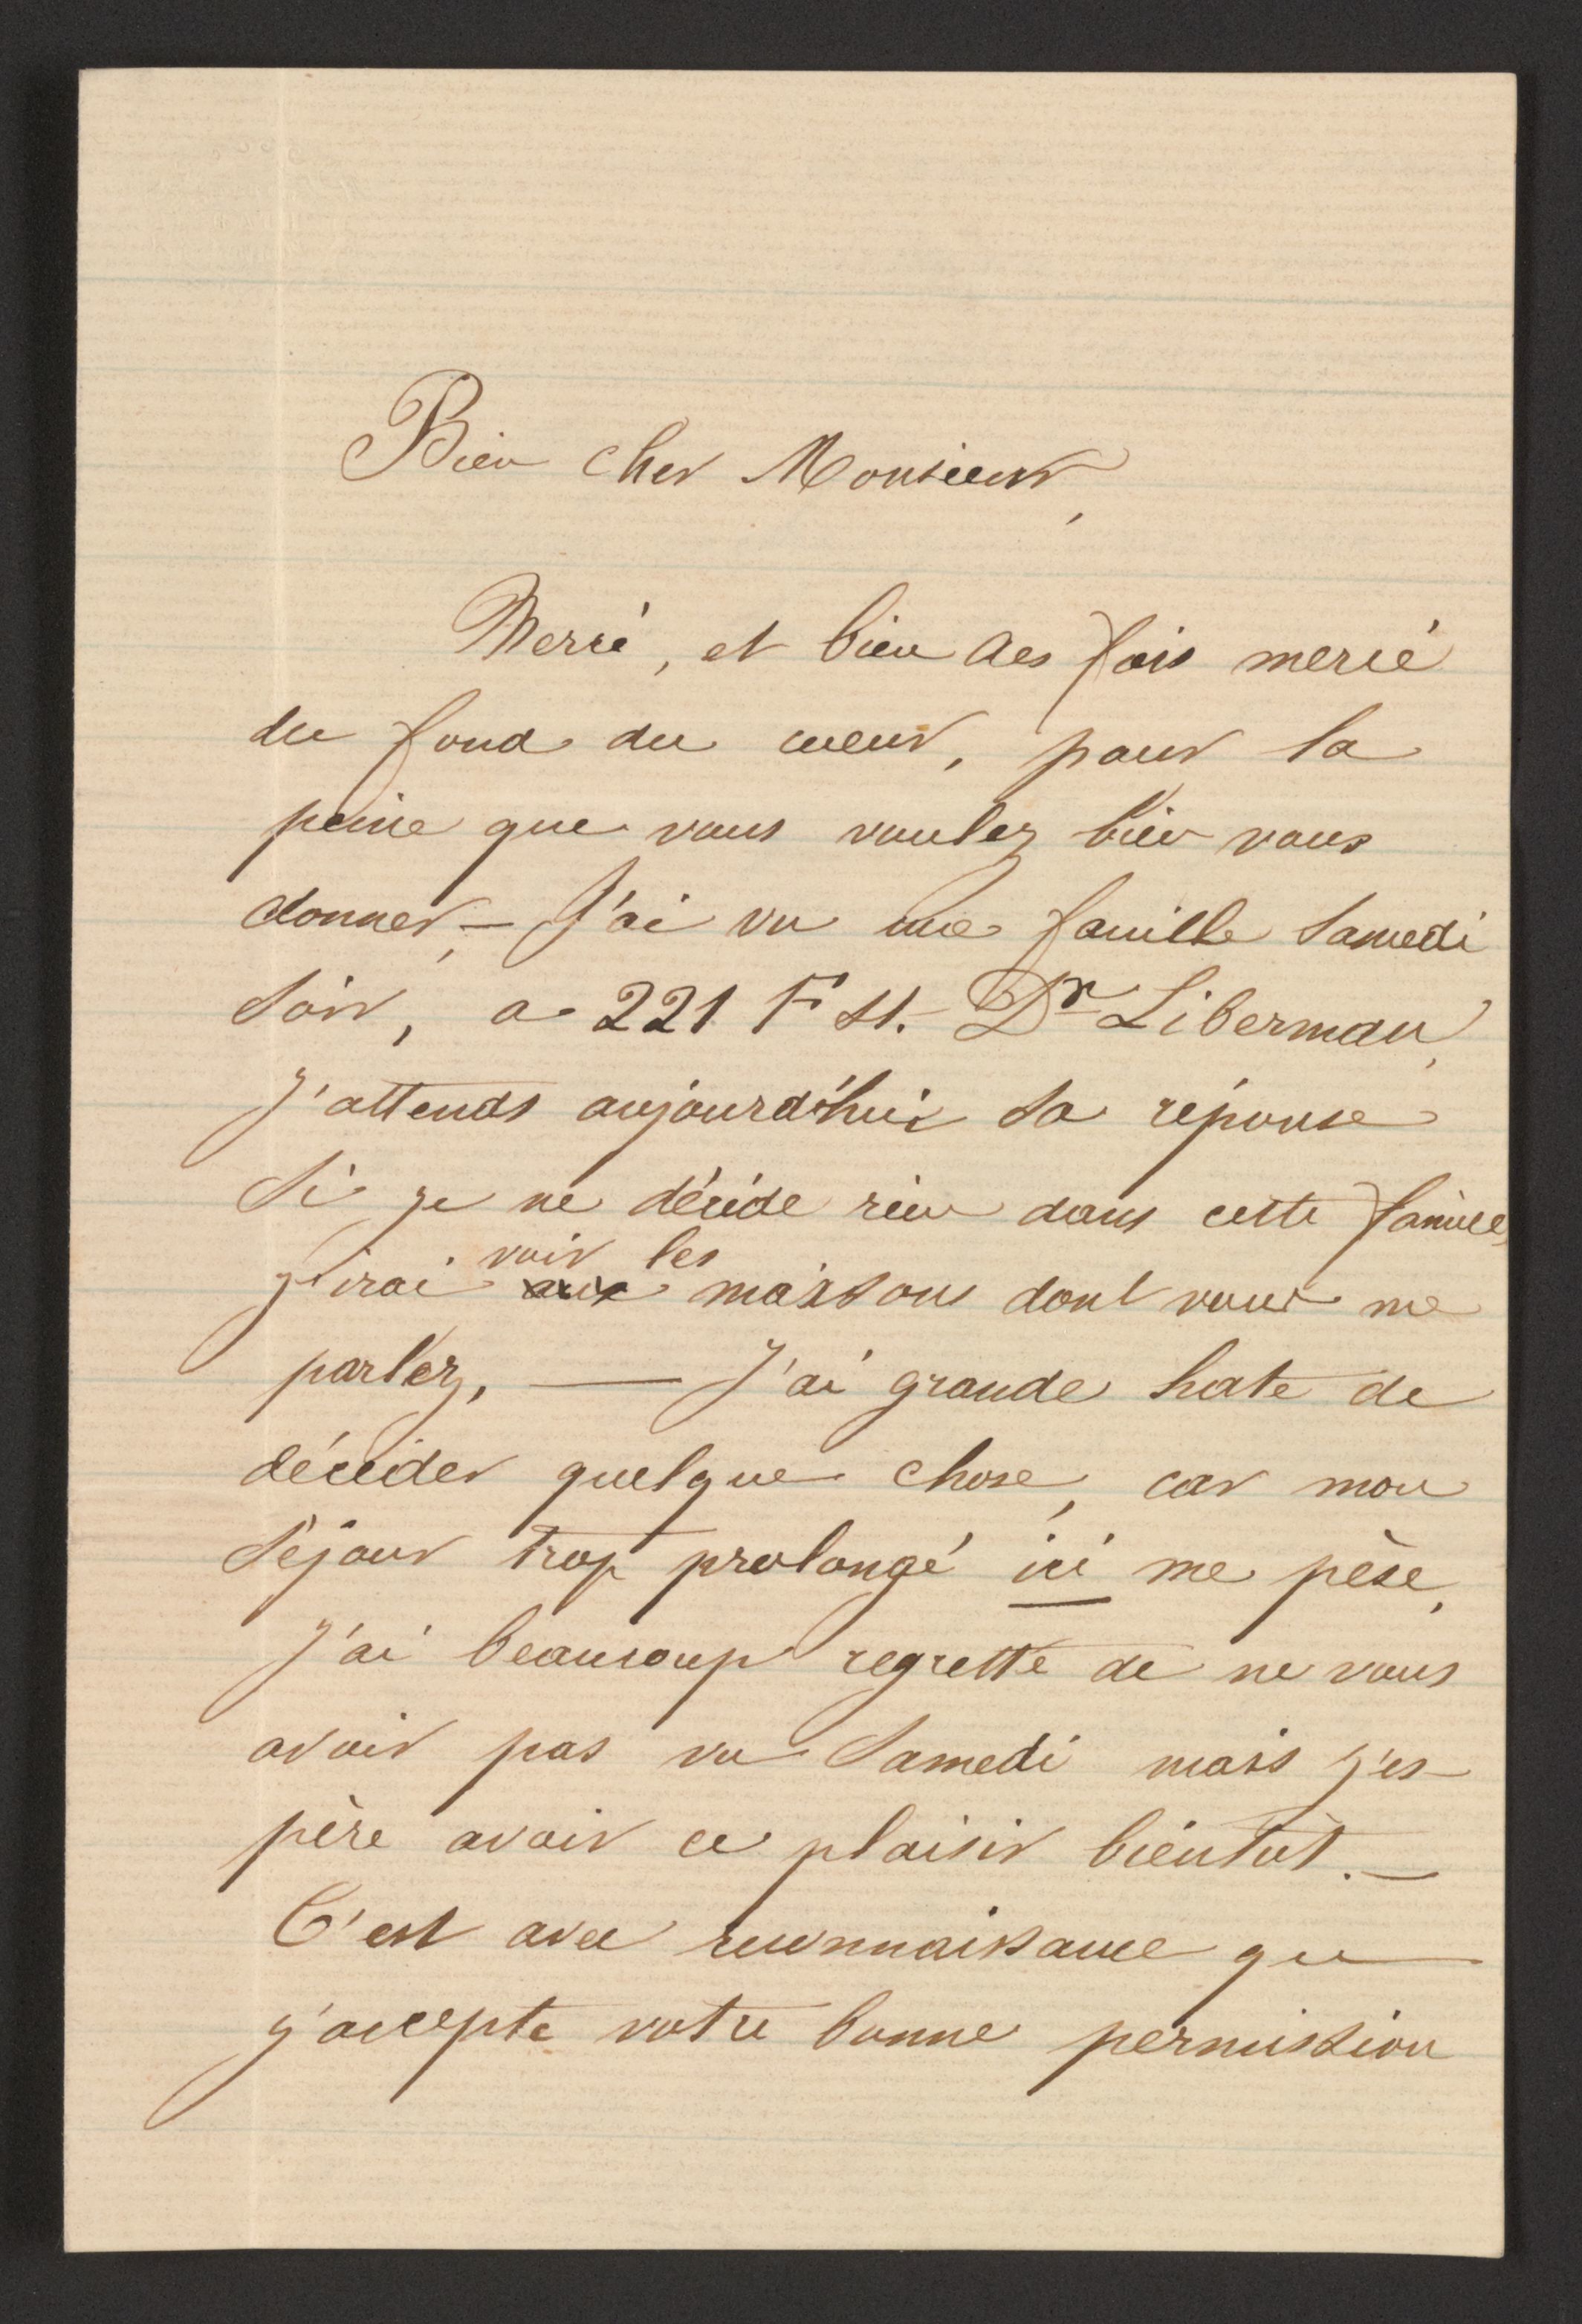 Bien cher Monsieur,
Merci, et bien des fois merci
du fond du cœur, pour la
peine que vous voulez bien vous
donner, — J'ai vu une famille Samedi
Soir, a 221 F St. Dr Liberman,
J'attends aujourd'hui sa réponse
Si je ne décide rien dans cette famille,
voir les
j'irai aux maisons dont vous me
parlez, — J'ai grande hate de
décider quelque chose, car mon
Séjour trop prolongé ici me pèse,
J'ai beaucoup regretté de ne vous
avoir pas vu Samedi mais j'es-
père avoir ce plaisir bientôt. —
C'est avec reconnaissance que
j'accepte votre bonne permission